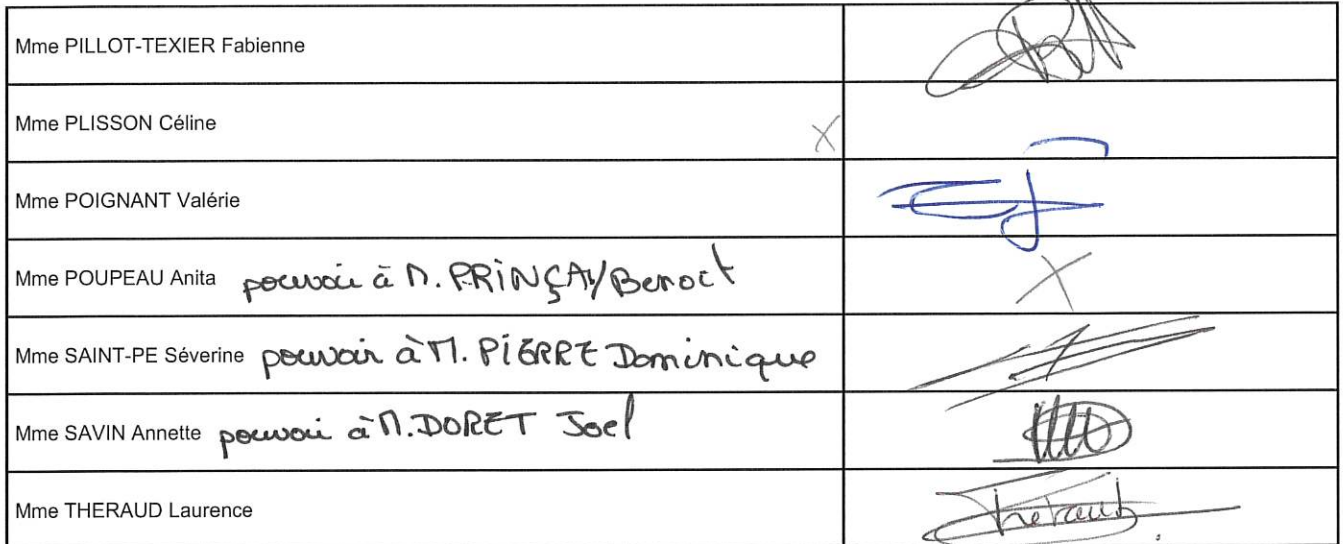 Mme PILLOT-TEXIER Fabienne
Mme PLISSON Céline X
Mme POIGNANT Valérie
Mme POUPEAU Anita pouvoir à M. PRINÇAY Benoit X
Mme SAINT-PE Séverine pouvoir à M. PIERRE Dominique
Mme SAVIN Annette pouvoir à M. DORET Joel
Mme THERAUD Laurence Theraud